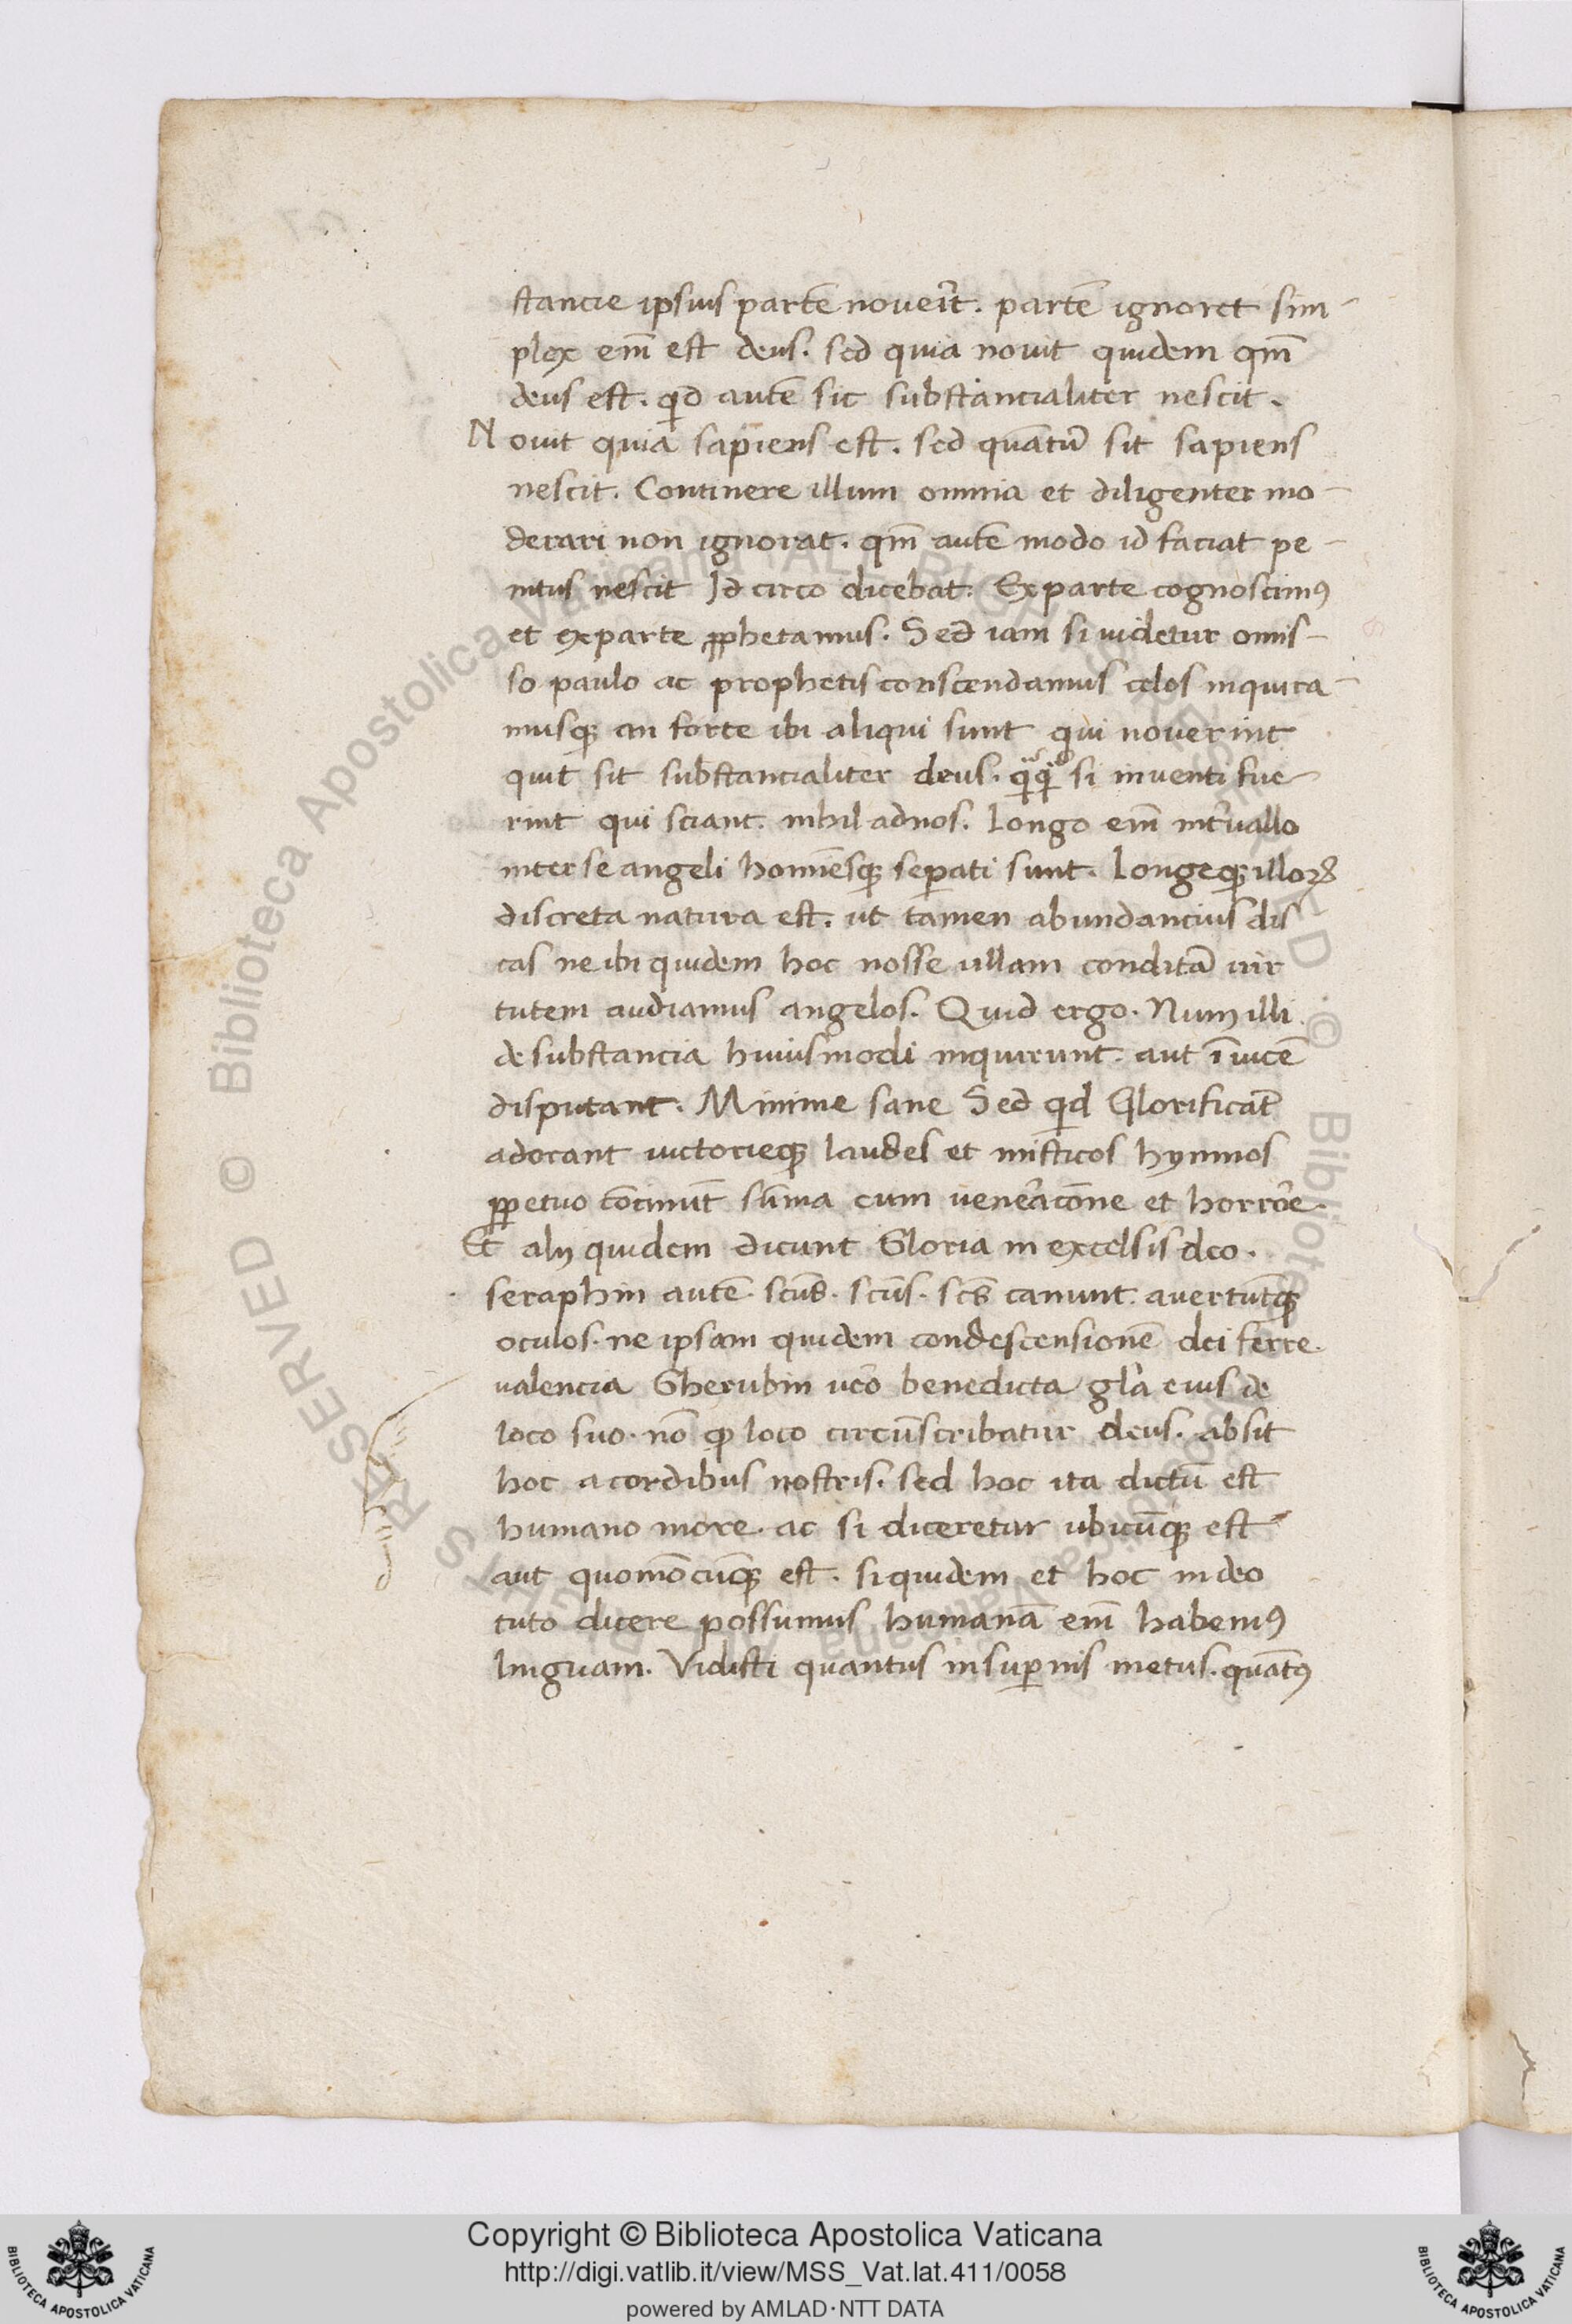 stancie ipsius partē noveīt. partē ignoret sim-
plex em̄ est deus. sed quia novit quidem qm̄
deus est. qid autē sit substancialiter nescit.
Novit quia sapiens est. sed quātū sit sapiens
nescit. Continere illum omnia et diligenter mo-
derari non ignorat. qm̄ autē modo id faciat pe-
nitus nescit Id circo dicebat. Ex parte cognoscimꝰ
et ex parte ꝓphetamus. Sed iam si videtur omis-
so paulo ac prophetis conscendamus celos inquira-
musqꝫ an forte ibi aliqui sunt qui noverint
quit sit substancialiter deus. si inventi fue-
rint qui sciant. nihil ad nos. Longo em̄ int̓vallo
inter se angeli homīesqꝫ sep̄ati sunt. Longeqꝫ illoꝝ
discreta natura est. ut tamen abundancius dis
cas ne ibi quidem hoc nosse ullam conditā vir
tutem audiamus angelos. Quid ergo. Num illi
de substancia huiusmodi inquirunt. aut īvicē
disputant. Minime sane Sed qid Glorificāt
adorant victorieqꝫ laudes et misticos hymnos
ꝑpetuo cōcinūt sūma cum venerācōne et horrōe.
Et alij quidem dicunt Gloria in excelsis deo.
seraphin autē. scūs. scūs. scs̄ canunt. avertūtqꝫ
oculos. ne ipsam quidem condescensionē dei ferre.
valencia Cherubin vēo benedicta gl̄a eius de
loco suo. nō qꝫ loco circūscribatur deus. absit
hoc a cordibus nostris. sed hoc ita dictū est
humano more. ac si diceretur ubicūqꝫ est
aut quomōcūqꝫ est. siquidem et hoc in deo
tuto dicere possumus humanā em̄ habemꝰ
linguam. Vidisti quantus in sup̄nis metus. quātꝰ
Copyright © Biblioteca Apostolica Vaticana
http://digi.vatlib.it/view/MSS_Vat.lat.411/0058
powered by AMLAD·NTT DATA